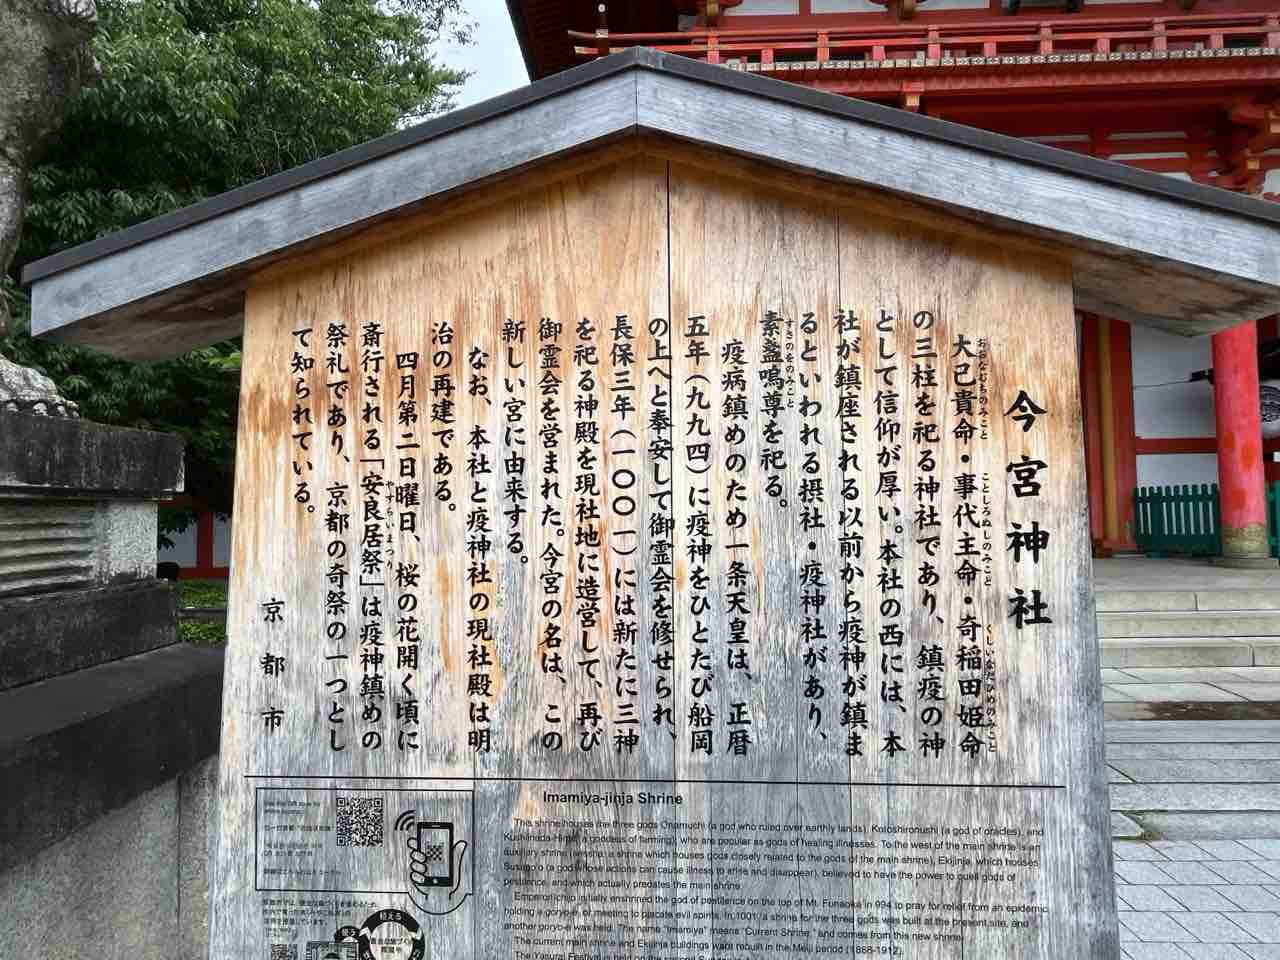 今宮神社
大己貴命・事代主命・奇稲田姫命
おおなむちのみこと ことしろぬしのみこと くしいなだひめのみこと
の三柱を祀る神社であり、鎮疫の神
として信仰が厚い。本社の西には、本
社が鎮座される以前から疫神が鎮ま
るといわれる摂社・疫神社があり、
素盞嗚尊を祀る。
すさのをのみこと
疫病鎮めのため一条天皇は、正暦
五年（九九四）に疫神をひとたび船岡
の上へと奉安して御霊会を修せられ、
長保三年（一〇〇一）には新たに三神
を祀る神殿を現社地に造営して、再び
御霊会を営まれた。今宮の名は、この
新しい宮に由来する。
なお、本社と疫神社の現社殿は明
治の再建である。
四月第二日曜日、桜の花開く頃に
斎行される「安良居祭」は疫神鎮めの
やすらいまつり
祭礼であり、京都の奇祭の一つとし
て知られている。
京都市
Imamiya-jinja Shrine
This shrine houses the three gods Onamuchi (a god who ruled over earthly lands), Kotoshironushi (a god of oracles), and
Kushiinada-Hime (a goddess of farming), who are popular as gods of healing illnesses. To the west of the main shrine is an
auxiliary shrine (sessha: a shrine which houses gods closely related to the gods of the main shrine), Ekijinja, which houses
Susano'o (a god whose actions can cause illness to arise and disappear), believed to have the power to quell gods of
pestilence, and which actually predates the main shrine.
Emperor Ichijo initially enshrined the god of pestilence on the top of Mt. Funaoka in 994 to pray for relief from an epidemic,
holding a goryo-e, or meeting to placate evil spirits. In 1001, a shrine for the three gods was built at the present site, and
another goryo-e was held. The name "Imamiya" means "Current Shrine," and comes from this new shrine.
The current main shrine and Ekijinja buildings were rebuilt in the Meiji period (1868-1912).
The Yasurai Festival is held on the second Sunday
植える
使う